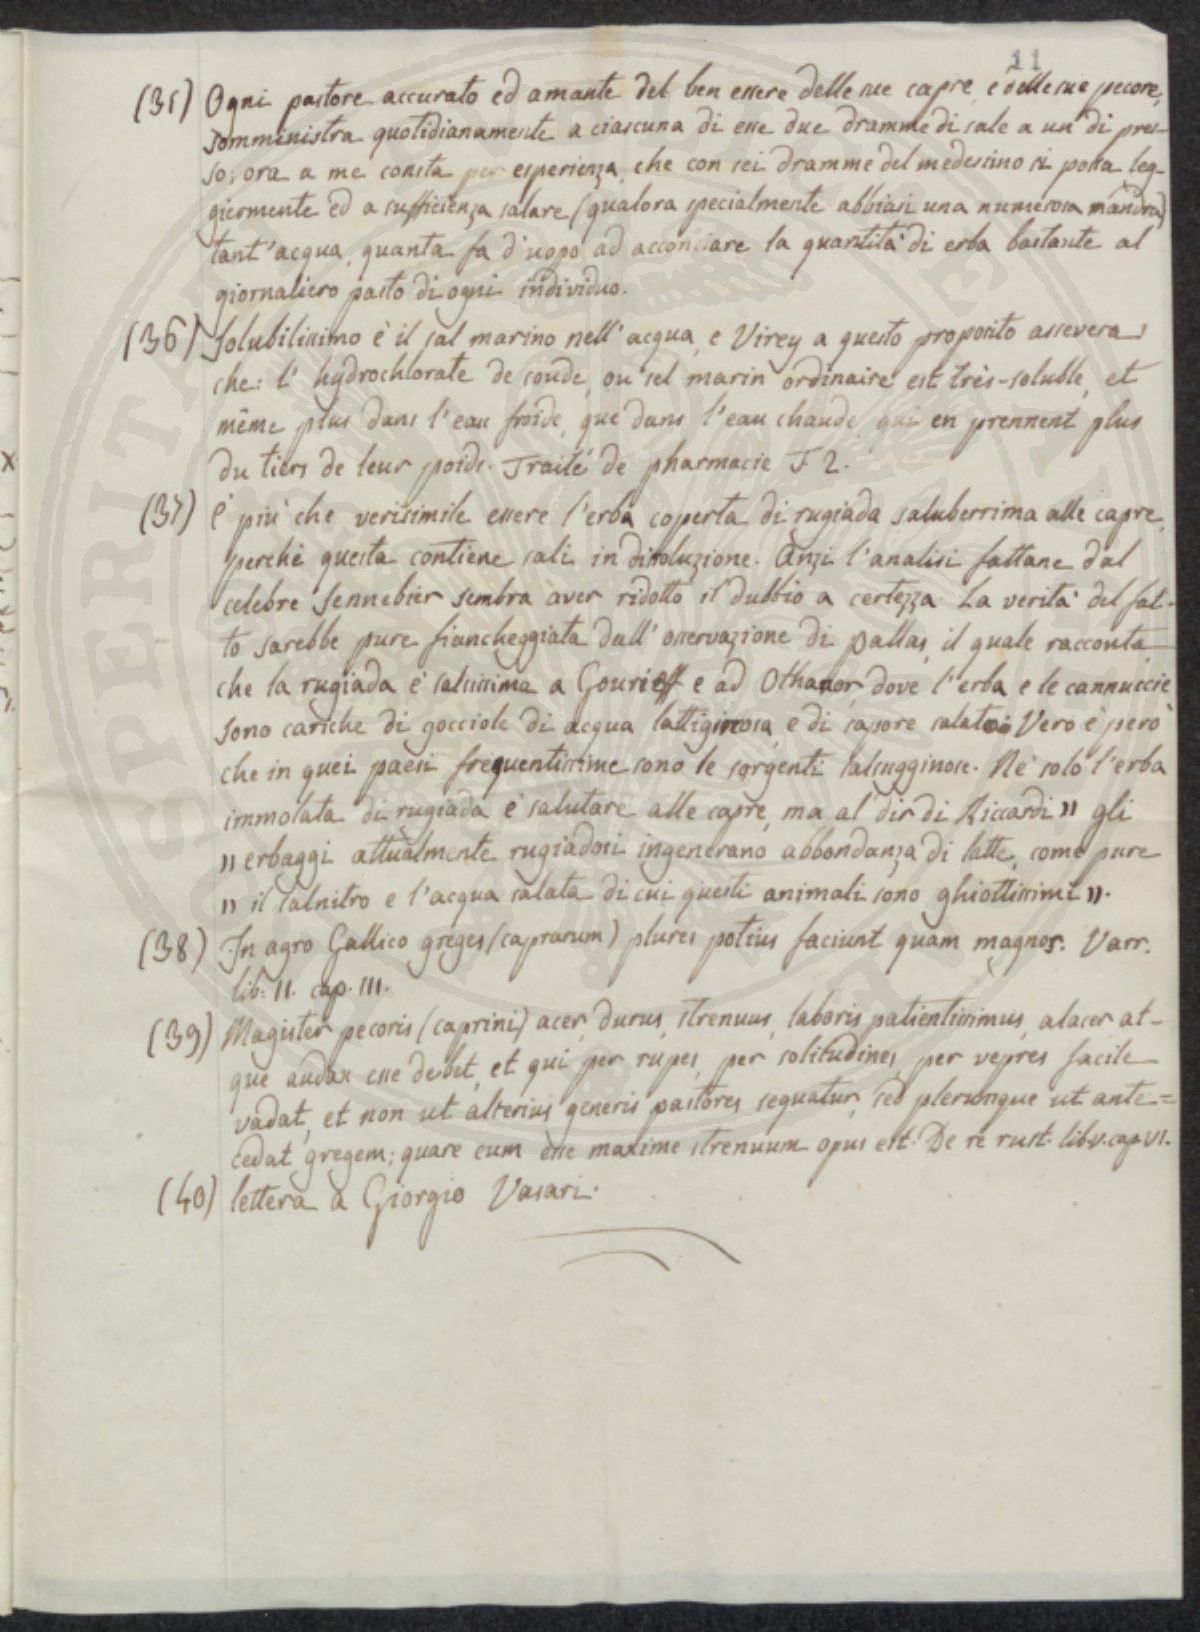 11
(35) Ogni pastore accurato ed amante del ben essere delle sue capre, e delle sue pecore,
somministra quotidianamente a ciascuna di esse due dramme di sale a un di pres-
so; ora a me consta per esperienza, che con sei dramme del medesimo si possa leg-
giermente ed a sufficienza salare (qualora specialmente abbiasi una numerosa mandra)
tant'acqua, quanta fa d'uopo ad acconciare la quantità di erba bastante al
giornaliero pasto di ogni individuo.
(36) Solubilissimo è il sal marino nell'acqua, e Virey a questo proposito assevera
che: l'hydrochlorate de soude, ou sel marin ordinaire est très-soluble, et
même plus dans l'eau froide, que dans l'eau chaude qui en prennent plus
du tiers de leur poids. Traité de pharmacie T 2.
(37) È più che verisimile essere l'erba coperta di rugiada saluberrima alle capre,
perchè questa contiene sali in dissoluzione. Anzi l'analisi fattane dal
celebre Sennebier sembra aver ridotto il dubbio a certezza. La verità del fat-
to sarebbe pure fiancheggiata dall'osservazione di Pallas, il quale racconta
che la rugiada è salsissima a Gourieff e ad Othanor, dove l'erba e le cannuccie
sono cariche di gocciole di acqua lattiginosa, e di sapore salato. Vero è però
che in quei paesi frequentissime sono le sorgenti salsugginose. Nè solo l'erba
immolata di rugiada è salutare alle capre, ma al dir di Riccardi " gli
" erbaggi attualmente rugiadosi ingenerano abbondanza di latte, come pure
" il salnitro e l'acqua salata di cui questi animali sono ghiottissimi ".
(38) In agro Gallico greges (caprarum) plures potius faciunt quam magnos. Varr.
lib. II. cap. III.
(39) Magister pecoris (caprini) acer, durus, strenuus, laboris patientissimus, alacer at-
que audax esse debet, et qui per rupes, per solitudines, per vepres facile
vadat, et non ut alterius generis pastores sequatur, sed plerumque ut ante=
cedat gregem; quare eum esse maxime strenuum opus est. De re rust. lib. V. cap. VI.
(40) lettera a Giorgio Vasari.